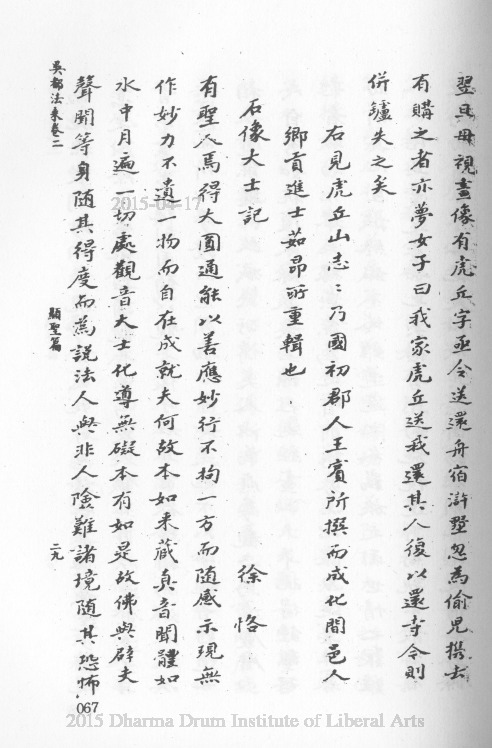 翌具毋視畫像有虎丘字亟令送還舟宿滸墅忽為偷児携去
有購之者亦夢女子曰我家虎丘送我還其人復以還寺今則
併鑪失之矣
右見虎丘山志〻乃國初郡人王賓所撰而成化間邑人
鄉貢進士茹昂所重輯也
石像大士記
徐恪
有聖人焉得大圓通能以善應妙行不拘一方而随感示現無
作妙力不遺一物而自在成就夫何故本如来蔵真音聞體如
水中月遍一切處觀音大士化導無礙本有如是故佛與辟支
聲聞等身随其得度而為說法人與非人險難諸境随其恐怖
吳都法乘卷二
顯聖篇
二九
067
2015-04-17
2015 Dharma Drum Institute of Liberal Arts